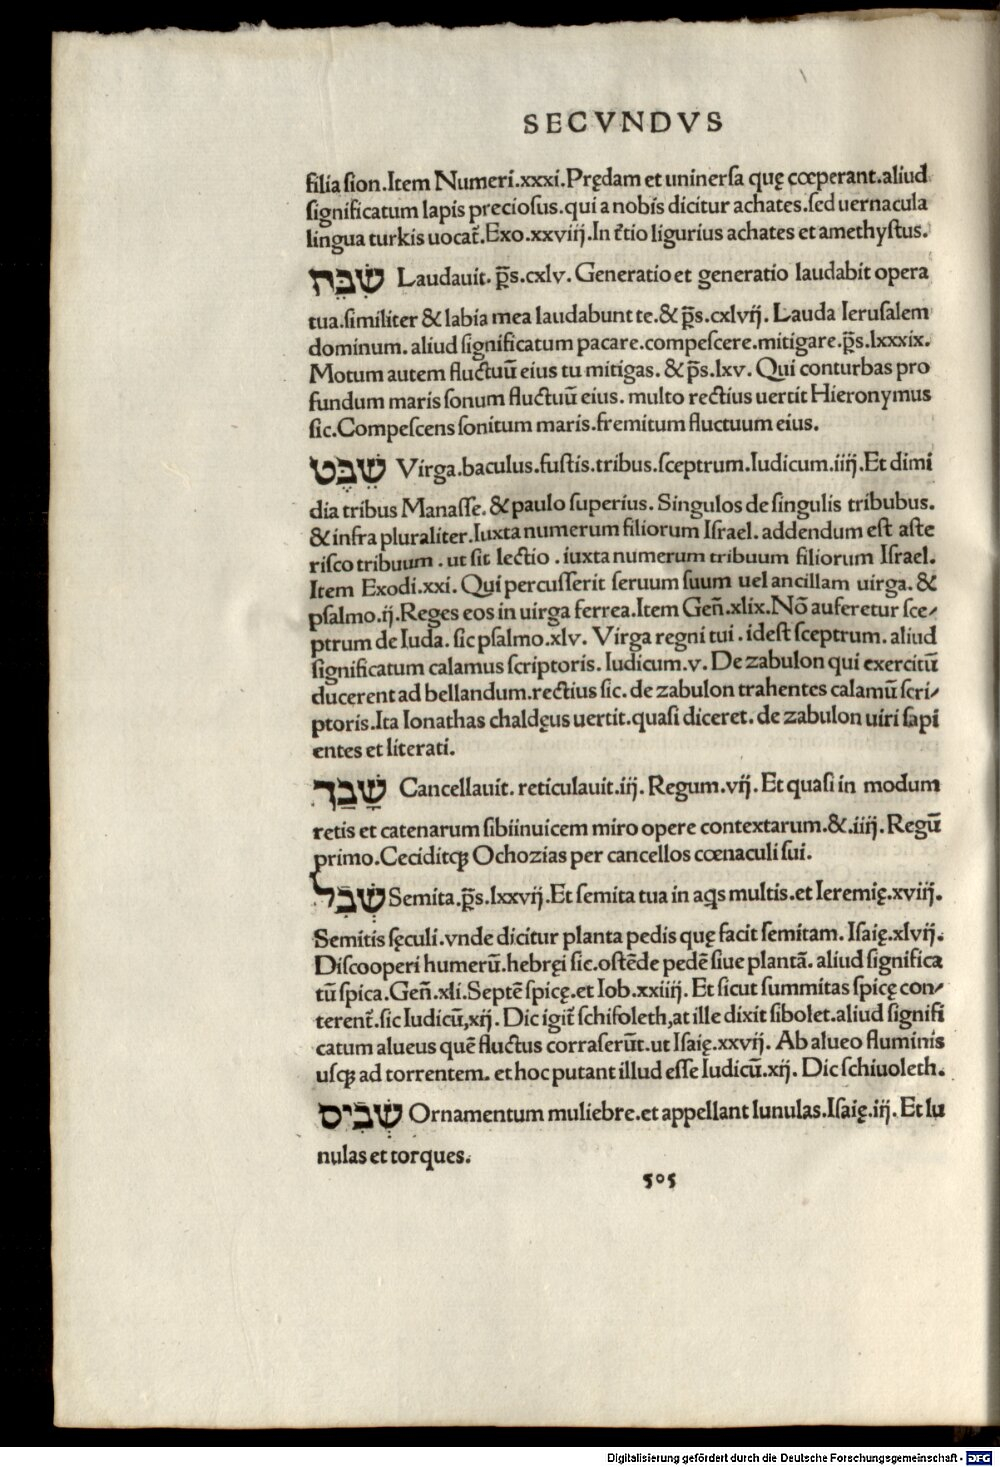 SECVNDVS
filia sion.Item Numeri.xxxi.Prędam et uninersa quę cœperant.aliud
significatum lapis preciosus.qui a nobis dicitur achates.sed uernacula
lingua turkis uocat̃.Exo.xxviij.In t̃tio ligurius achates et amethystus.
שִׁבֵּח Laudauit. p̃s.cxlv. Generatio et generatio laudabit opera
tua.similiter & labia mea laudabunt te.& p̃s.cxlvij. Lauda Ierusalem
dominum. aliud significatum pacare.compescere.mitigare.p̃s.lxxxix.
Motum autem fluctuū eius tu mitigas. & p̃s.lxv. Qui conturbas pro
fundum maris sonum fluctuū eius. multo rectius uertit Hieronymus
sic.Compescens sonitum maris.fremitum fluctuum eius.
שֵׁבֶט Virga.baculus.fustis.tribus.sceptrum.Iudicum.iiij.Et dimi
dia tribus Manasse. & paulo superius. Singulos de singulis tribubus.
& infra pluraliter.Iuxta numerum filiorum Israel. addendum est aste
risco tribuum . ut sit lectio . iuxta numerum tribuum filiorum Israel.
Item Exodi.xxi. Qui percusserit seruum suum uel ancillam uirga. &
psalmo.ij.Reges eos in uirga ferrea.Item Geñ.xlix.Nō auferetur sce/
ptrum de Iuda. sic psalmo.xlv. Virga regni tui . idest sceptrum. aliud
significatum calamus scriptoris. Iudicum.v. De zabulon qui exercitū
ducerent ad bellandum.rectius sic. de zabulon trahentes calamū scri/
ptoris.Ita Ionathas chaldęus uertit.quasi diceret. de zabulon uiri sapi
entes et literati.
שָׂבַך Cancellauit. reticulauit.iij. Regum.vij. Et quasi in modum
retis et catenarum sibiinuicem miro opere contextarum.&.iiij. Regū
primo.Ceciditqꝫ Ochozias per cancellos cœnaculi sui.
שְׁבִל Semita.p̃s.lxxvij.Et semita tua in aq̃s multis.et Ieremię.xviij.
Semitis sęculi.vnde dicitur planta pedis quę facit semitam. Isaię.xlvij.
Discooperi humerū.hebręi sic.ostēde pedē siue plantā. aliud significa
tū spica.Geñ.xli.Septē spicę.et Iob.xxiiij. Et sicut summitas spicę con/
terent̃.sic Iudicū,xij. Dic igit̃ schisoleth,at ille dixit sibolet.aliud signifi
catum alueus quē fluctus corraserūt.ut Isaię.xxvij. Ab alueo fluminis
usqꝫ ad torrentem. et hoc putant illud esse Iudicū.xij. Dic schiuoleth.
שְׁבִיס Ornamentum muliebre.et appellant lunulas.Isaię.iij. Et lu
nulas et torques.
505
Digitalisierung gefördert durch die Deutsche Forschungsgemeinschaft - DFG